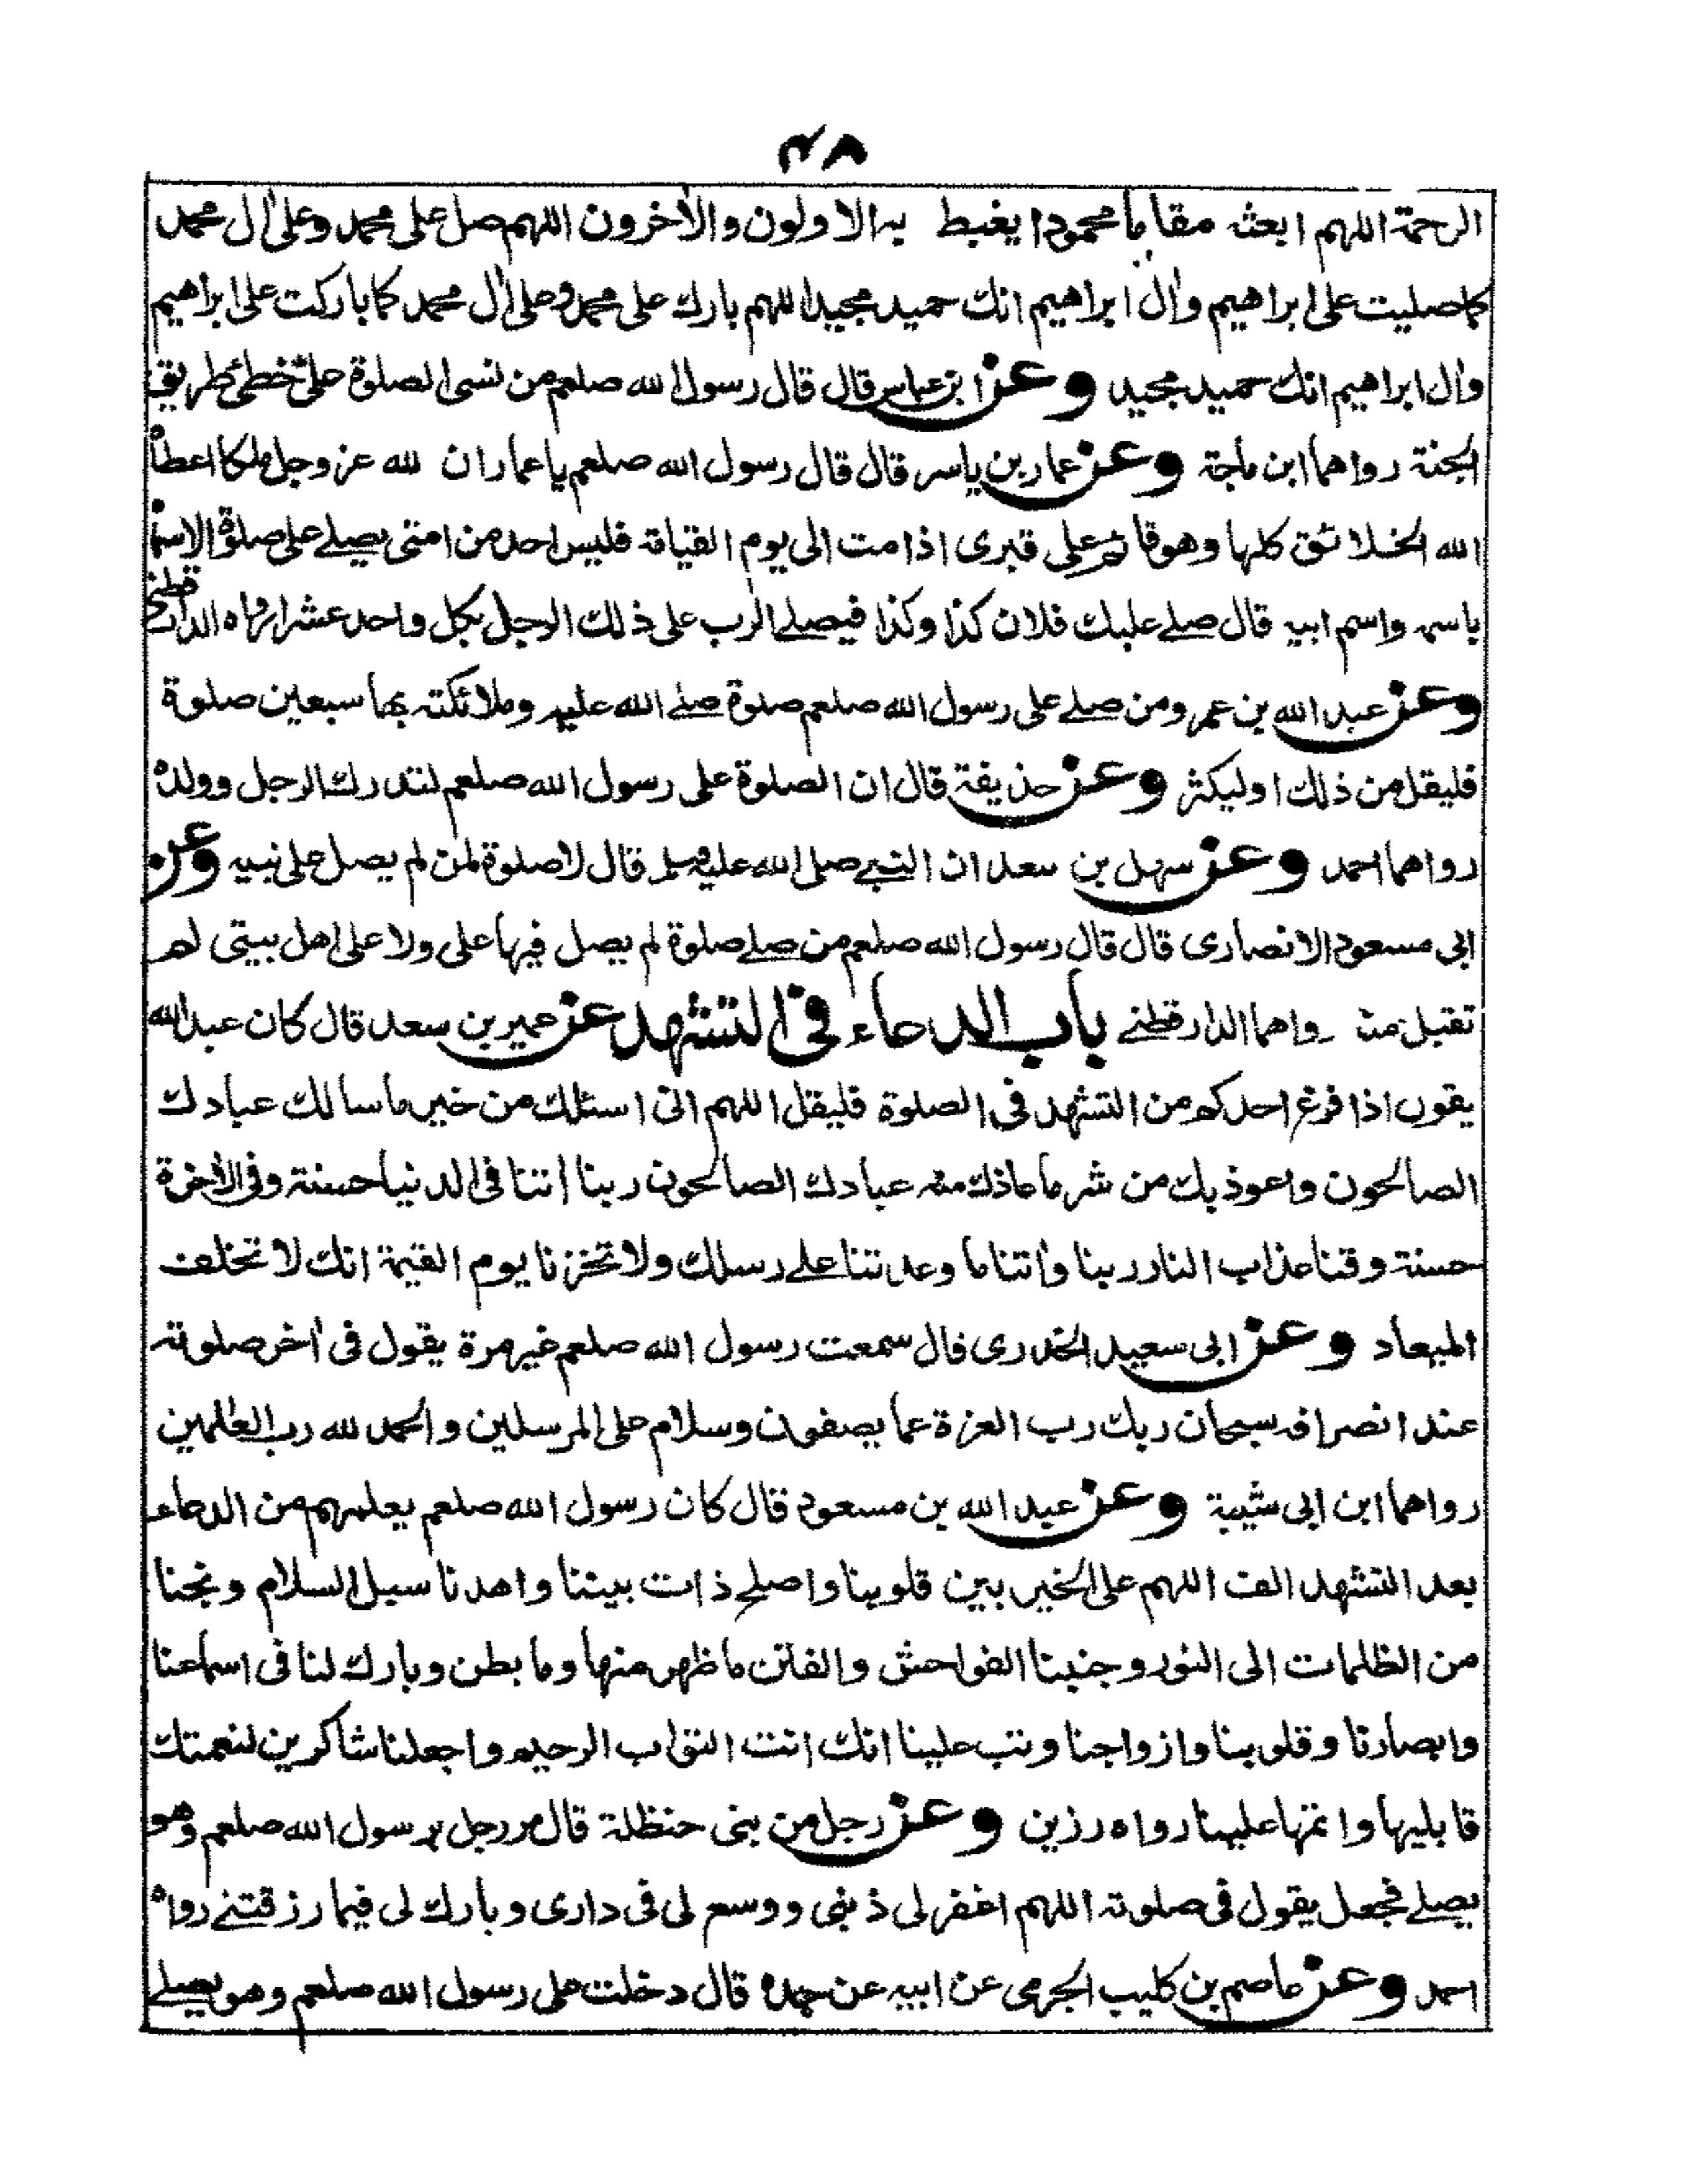 ٤٨
الرحمة اللهم ابعثه مقاما محمودا يغبط به الاولون والاخرون اللهم صل على محمد وعلى اٰل محمد
كما صليت على ابراهيم واٰل ابراهيم انك حميد مجيد اللهم بارك على محمد وعلى اٰل محمد كما باركت على ابراهيم
واٰل ابراهيم انك حميد مجيد وعن ابن عباس قال قال رسول الله صلعم من نسى الصلوة علىّ خطئ طريق
الجنة رواهما ابن ماجة وعن عمار بن ياسر قال قال رسول الله صلعم يا عمار ان لله عز وجل ملكا اعطاه
الله الخلائق كلها وهو قائم على قبرى اذا مت الى يوم القيامة فليس احد من امتى يصلے على صلوة الا سماه
باسمه واسم ابيه قال صلے عليك فلان كذا وكذا فيصلے الرب على ذلك الرجل بكل واحد عشرا رواه الدارقطنى
وعن عبد الله بن عمر ومن صلے على رسول الله صلعم صلوة صلے الله عليه وملائكته بها سبعين صلوة
فليقل من ذلك او ليكثر وعن حذيفة قال ان الصلوة على رسول الله صلعم لتدرك الرجل وولده
رواهما احمد وعن سهل بن سعد ان النبے صلى الله عليه وسلم قال لا صلوة لمن لم يصل على نبيه وعن
ابى مسعود الانصارى قال قال رسول الله صلعم من صلے صلوة لم يصل فيها على ولا على اهل بيتى لم
تقبل منه رواهما الدارقطنے باب الدعاء فى التشهد عن عمير بن سعد قال كان عبد الله
يقول اذا فرغ احدكم من التشهد فى الصلوة فليقل اللهم انى اسئلك من خير ما سالك عبادك
الصالحون واعوذ بك من شر ما عاذك منه عبادك الصالحون ربنا اٰتنا فى الدنيا حسنة وفى الاٰخرة
حسنة وقنا عذاب النار ربنا واٰتنا ما وعدتنا علے رسلك ولا تخزنا يوم القيمة انك لا تخلف
الميعاد وعن ابى سعيد الخدرى قال سمعت رسول الله صلعم غير مرة يقول فى اٰخر صلوته
عند انصرافه سبحان ربك رب العزة عما يصفون وسلام على المرسلين والحمد لله رب العٰلمين
رواهما ابن ابى شيبة وعن عبد الله بن مسعود قال كان رسول الله صلعم يعلمهم من الدعاء
بعد التشهد الف اللهم على الخير بين قلوبنا واصلح ذات بيننا واهدنا سبل السلام ونجنا
من الظلمات الى النور وجنبنا الفواحش والفتن ما ظهر منها وما بطن وبارك لنا فى اسماعنا
وابصارنا وقلوبنا وازواجنا وتب علينا انك انت التواب الرحيم واجعلنا شاكرين لنعمتك
قابليها واتمها علينا رواه رزين وعن رجل من بنى حنظلة قال مر رجل برسول الله صلعم وهو
يصلے فجعل يقول فى صلوته اللهم اغفر لى ذنبى ووسع لى فى دارى وبارك لى فيما رزقتنے رواه
احمد وعن عاصم بن كليب الجرمى عن ابيه عن جده قال دخلت على رسول الله صلعم وهو يصلے